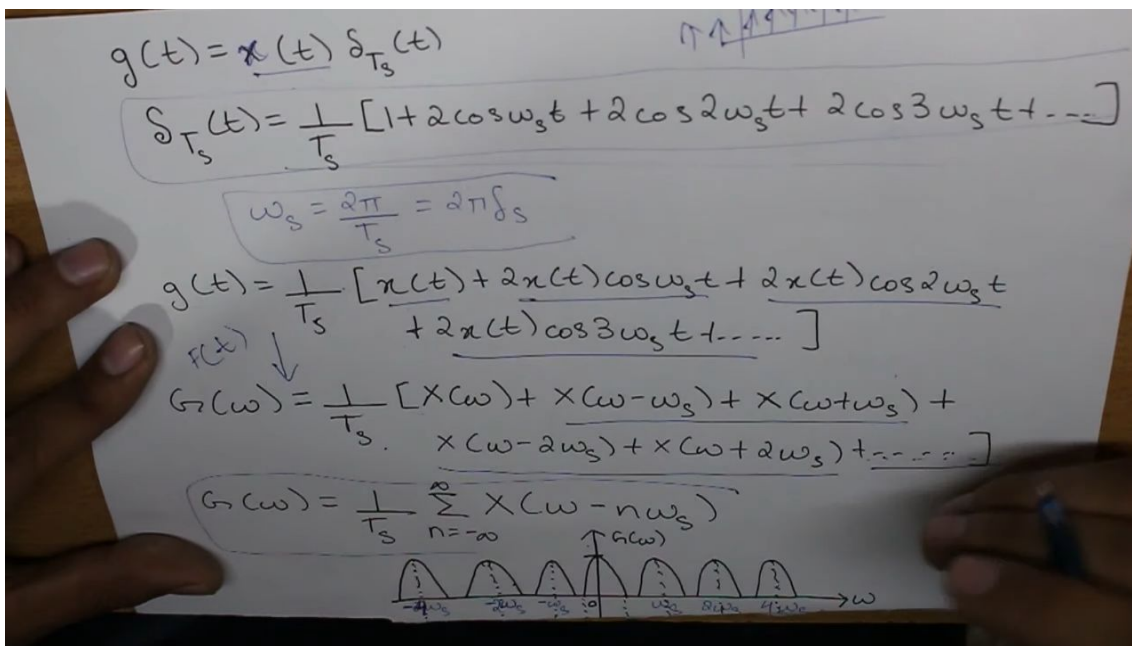 g(t) = x(t) δ_{T_s}(t)
δ_{T_s}(t) = 1/T_s [1 + 2cosω_s t + 2cos2ω_s t + 2cos3ω_s t + ----]
ω_s = 2π/T_s = 2πf_s
g(t) = 1/T_s [x(t) + 2x(t)cosω_s t + 2x(t)cos2ω_s t
+ 2x(t)cos3ω_s t + ----- ]
F(t)
G(ω) = 1/T_s [X(ω) + X(ω-ω_s) + X(ω+ω_s) +
X(ω-2ω_s) + X(ω+2ω_s) + ------]
G(ω) = 1/T_s ∑_{n=-∞}^{∞} X(ω - nω_s)
G(ω)
-2ω_s -ω_s 0 ω_s 2ω_s ω